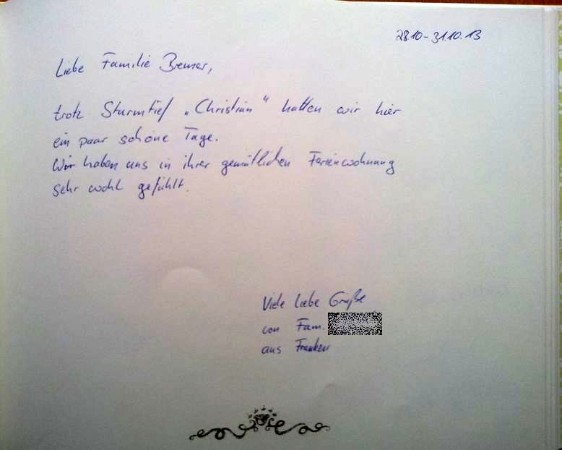 28.10-31.10.13
Liebe Familie Bremer,
trotz Sturmtief „Christian" hatten wir hier
ein paar schöne Tage.
Wir haben uns in ihrer gemütlichen Ferienwohnung
sehr wohl gefühlt.
Viele liebe Grüße
von Fam.
aus Franken